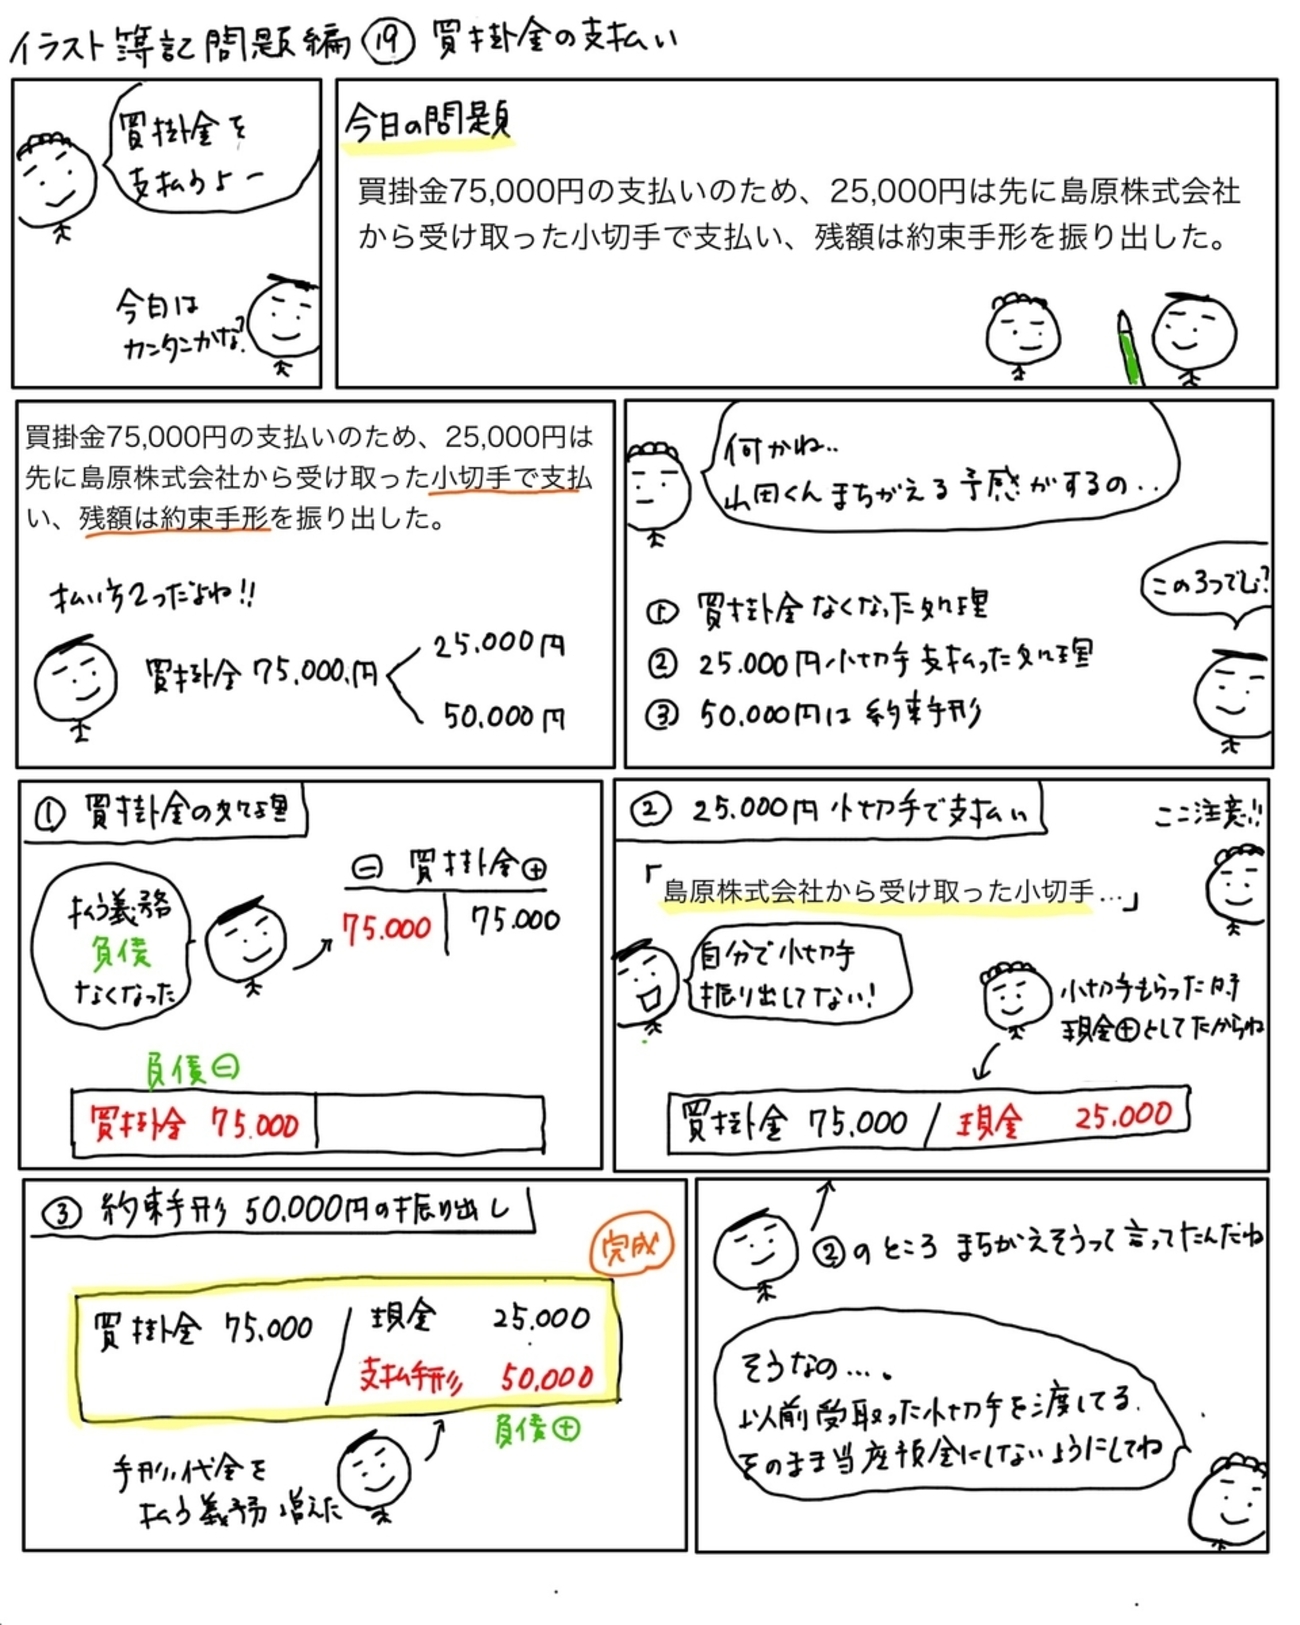 イラスト簿記問題編⑲買掛金の支払い
買掛金を
支払うよー
今日は
カンタンかな?
今日の問題
買掛金75,000円の支払いのため、25,000円は先に島原株式会社
から受け取った小切手で支払い、残額は約束手形を振り出した。
買掛金75,000円の支払いのため、25,000円は
先に島原株式会社から受け取った小切手で支払
い、残額は約束手形を振り出した。
払い方2つだよね!!
買掛金 75.000.円
25.000円
50.000円
何かね..
山田くんまちがえる予感がするの..
この3つでしょ?
① 買掛金なくなった処理
② 25.000円小切手支払った処理
③ 50.000円は約束手形
① 買掛金の処理
払う義務
負債
なくなった
㊀ 買掛金 ⊕
75.000 75.000
負債㊀
買掛金 75.000
② 25.000円小切手で支払い
ここ注意!!
「島原株式会社から受け取った小切手…」
自分で小切手
振り出してない!
小切手もらった時
現金⊕としてたからね
買掛金 75.000 / 現金 25.000
③ 約束手形 50.000円の振り出し
完成
買掛金 75.000 / 現金 25.000
支払手形 50.000
負債⊕
手形代金を
払う義務増えた
②のところまちがえそうって言ってたんだね
そうなの…。
以前受取った小切手を渡してる.
そのまま当座預金にしないようにしてね